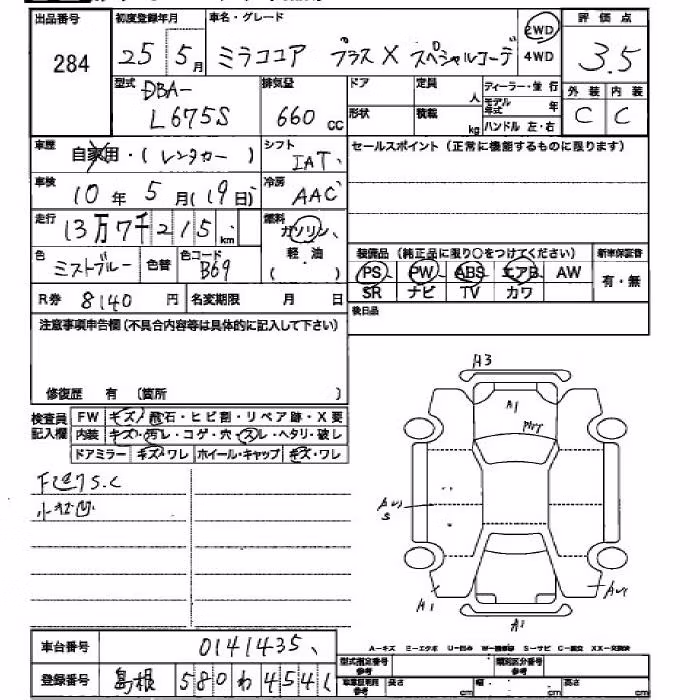 出品番号 初度登録年月 車名・グレード 2WD 評価点
284 25 5月 ミラココア プラスX スペシャルコーデ 4WD 3.5
型式 DBA- 排気量 ドア 定員 人 ディーラー・並行 外装 内装
L675S 660 cc 形状 積載 kg モデル年式 年 C C
ハンドル 左・右
車歴 自家用・(レンタカー) シフト IAT セールスポイント(正常に機能するものに限ります)
車検 10年5月(19日) 冷房 AAC
走行 13万7千215km 燃料 ガソリン
色 ミストブルー 色替 色コード B69 軽・油 ( )
装備品(純正品に限り〇をつけてください) 新車保証書
PS PW ABS エアB AW 有・無
SR ナビ TV カワ
R券 8140円 名変期限 月 日
後日品
注意事項申告欄(不具合内容等は具体的に記入して下さい)
修復歴 有 (箇所 )
検査員記入欄 FW キズ・飛石・ヒビ割・リペア跡・X要
内装 キズ・汚レ・コゲ・穴・スレ・ヘタリ・破レ
ドアミラー キズ・ワレ ホイール・キャップ キズ・ワレ
S.C
A3
A1
S
A1
A1
A-キズ E-エクボ U-凹み W-補修跡 S-サビ C-腐食 XX-交換済
車台番号 0141435
型式指定番号 類別区分番号
登録番号 島根 580 わ 4541
参考 長さ cm 幅 cm 高さ cm